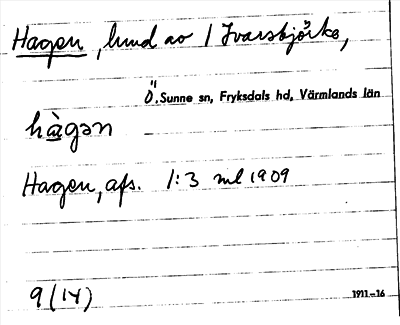 Hagen, lund av 1 Ivarsbjörke,
Ö. Sunne sn, Fryksdals hd, Värmlands län
hàgən
Hagen, afs. 1:3 ml 1909
9(14)
1911–16